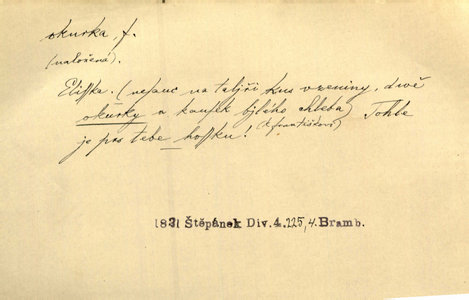 okurka, f.
(naložená).
Eliška. (nesouc na talíři kus uzeniny, dvě
okurky a kousek bílého chleba) Tohle
je pro tebe hošku! (K Františkovi)
1831 Štěpánek Div. 4. 225, 4. Bramb.